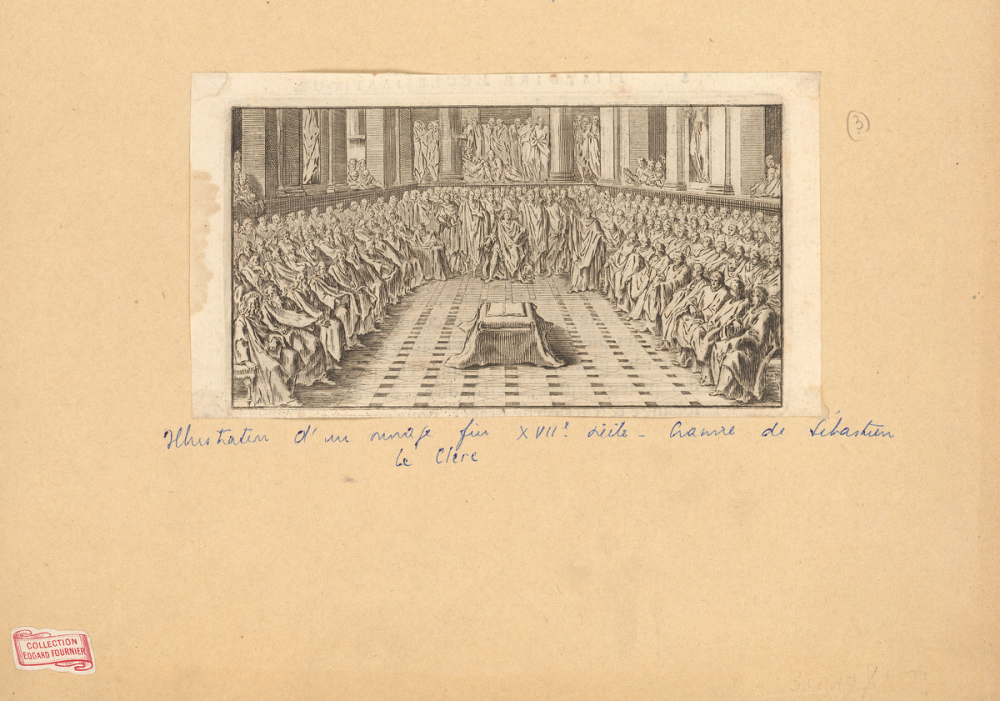 ③
Illustration d'un ouvrage fin XVIIe siècle - Gravure de Sébastien
Le Clerc
COLLECTION
EDGARD FOURNIER